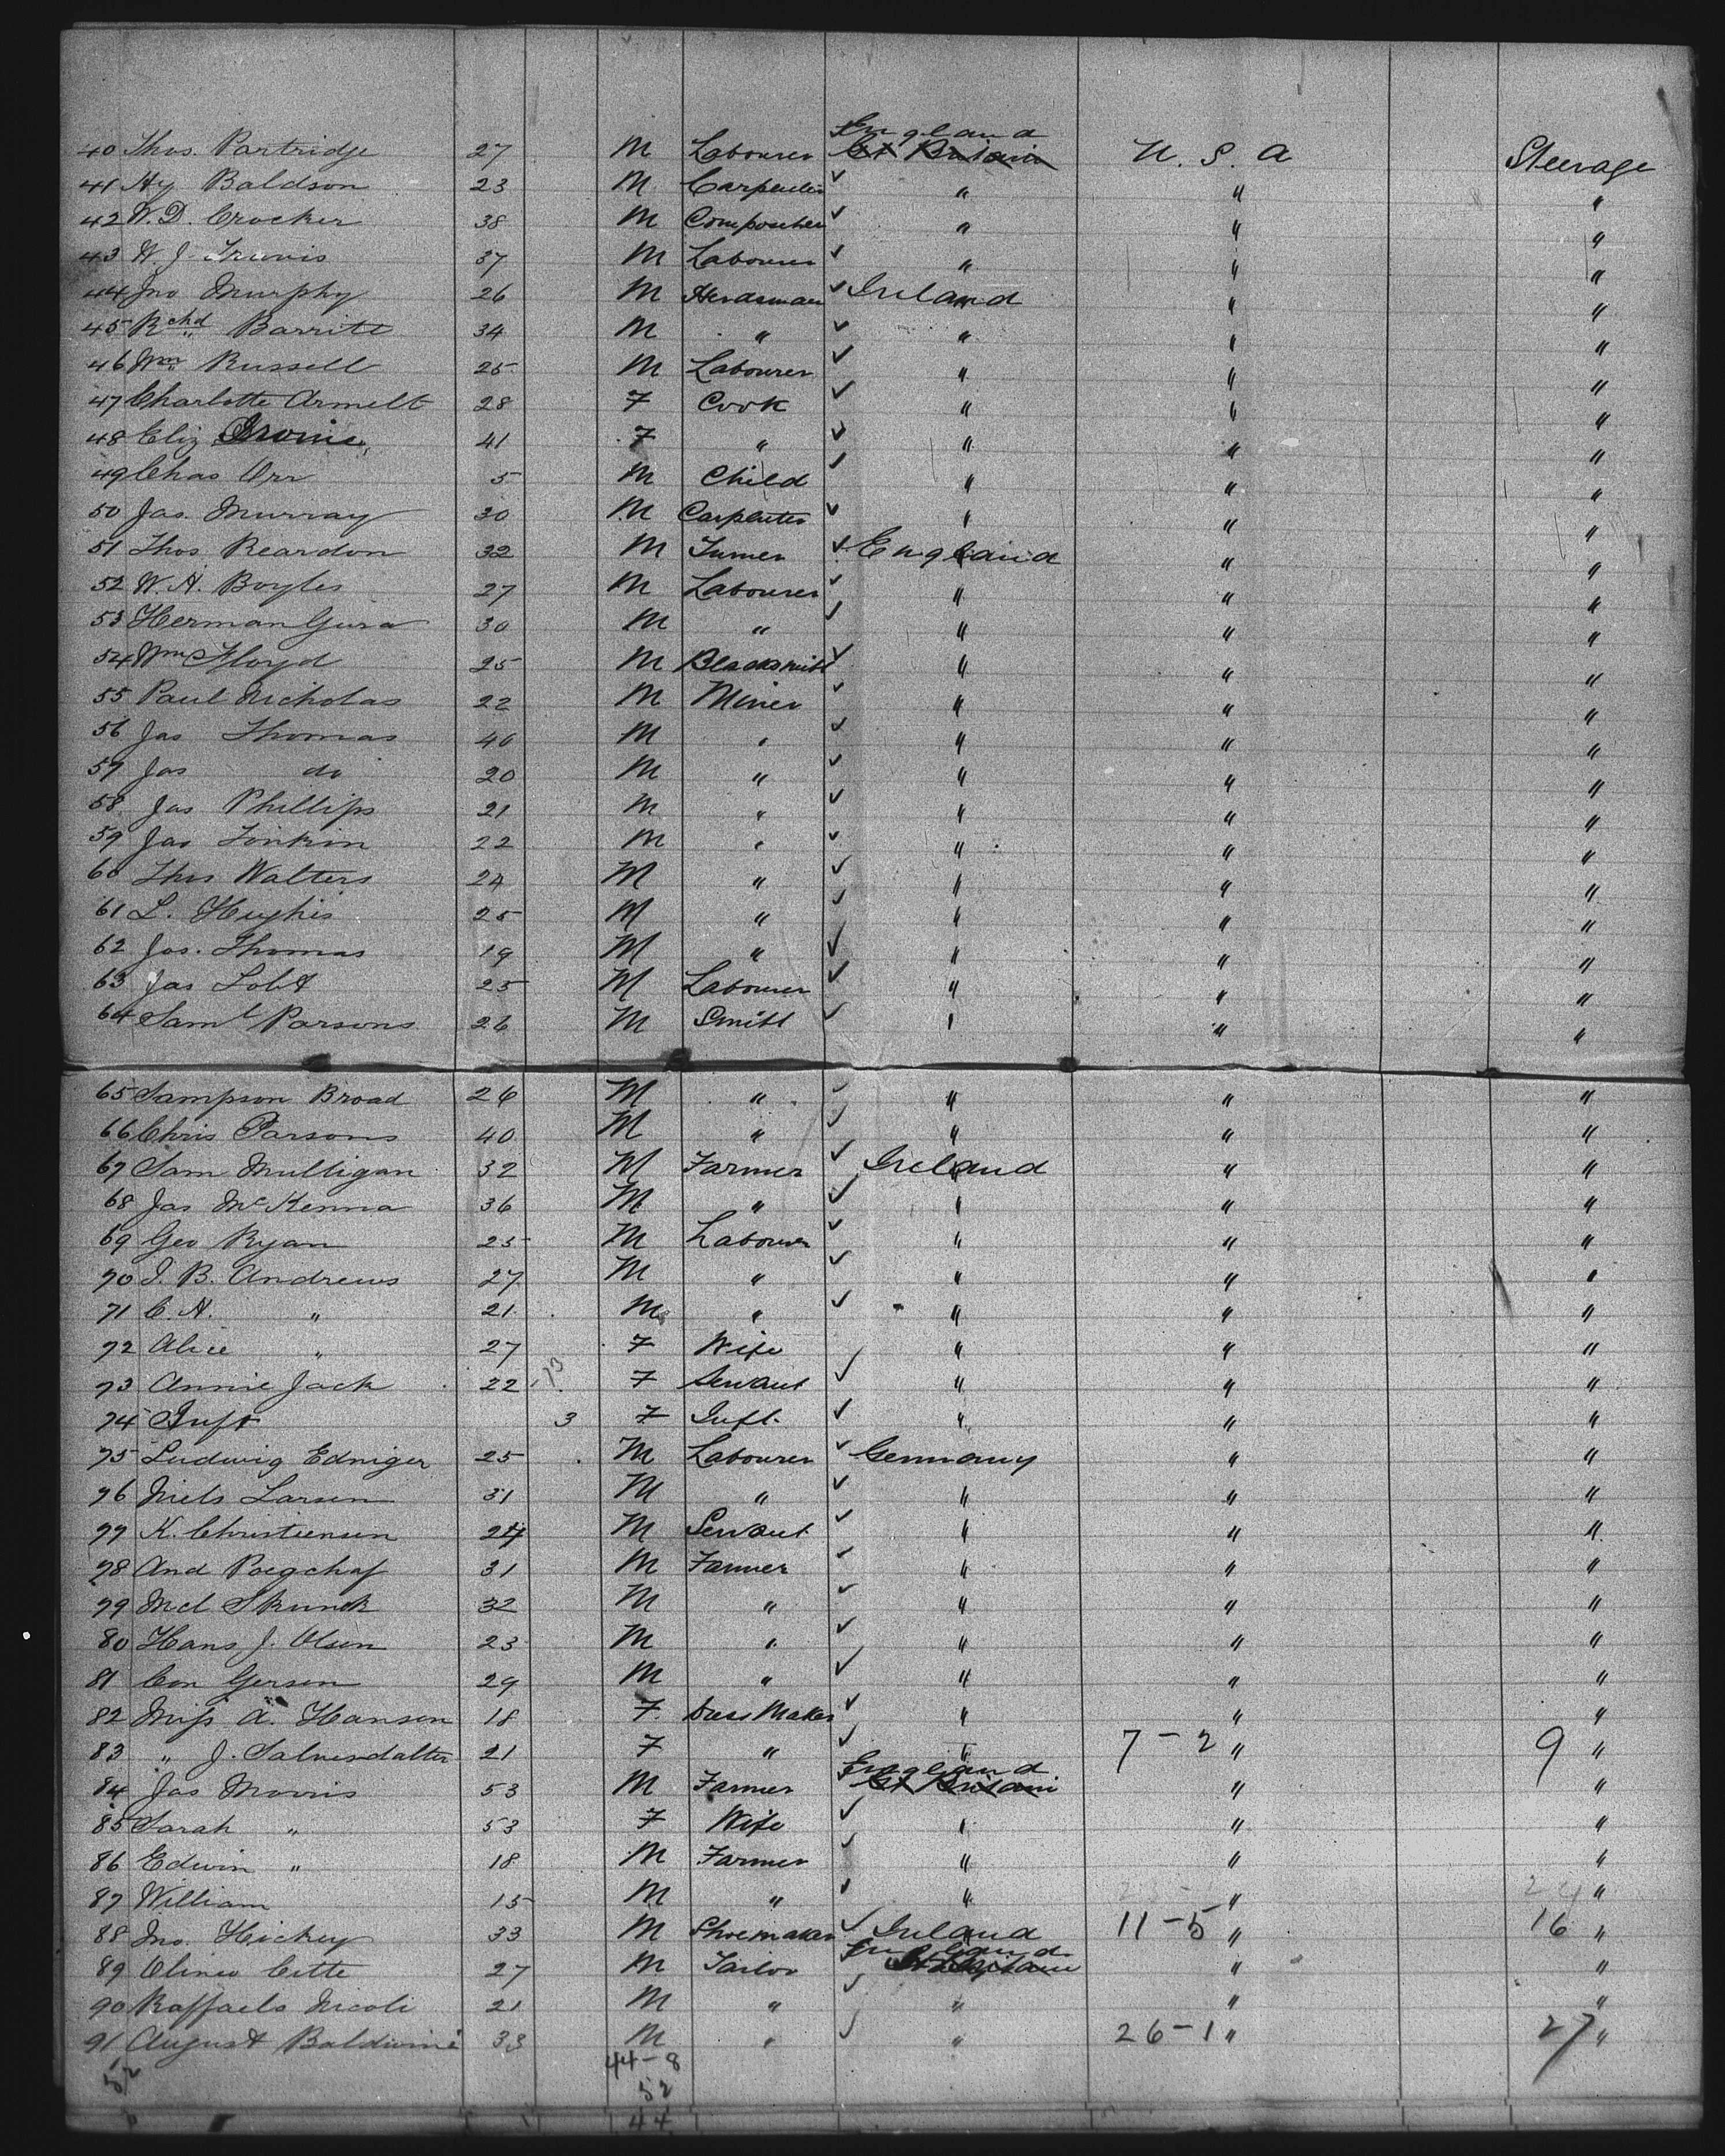 40 Thos. Partridge 27 M Labourer England Gt Britain U. S. A Steerage
41 Hy Baldson 23 M Carpenter ✓ " " "
42 W. D. Crocker 38 M ✓ " " "
43 W. J. 37 M Labourer ✓ " " "
44 Jno Murphy 26 M Herdsman ✓ Ireland " "
45 Rchd Barritt 34 M " ✓ " " "
46 Wm Russell 25 M Labourer ✓ " " "
47 Charlotte Armelt 28 F Cook ✓ " " "
48 Eliz 41 F " ✓ " " "
49 Chas Orr 5 M Child ✓ " " "
50 Jas. Murray 30 M Carpenter ✓ " " "
51 Thos Reardon 32 M Turner ✓ England " "
52 W. H. Boyles 27 M Labourer ✓ " " "
53 Herman Gura 30 M " ✓ " " "
54 Wm Floyd 25 M Blacksmith ✓ " " "
55 Paul Nicholas 22 M Miner ✓ " " "
56 Jas Thomas 40 M " ✓ " " "
57 Jas do 20 M " ✓ " " "
58 Jas Phillips 21 M " ✓ " " "
59 Jas Tonkin 22 M " ✓ " " "
60 Thos Walters 24 M " ✓ " " "
61 L. Hughes 25 M " ✓ " " "
62 Jos. Thomas 19 M " ✓ " " "
63 Jas 25 M Labourer ✓ " " "
64 Saml Parsons 26 M Smith ✓ " " "
65 Sampson Broad 26 M " ✓ " " "
66 Chris Parsons 40 M " ✓ " " "
67 Sam Mulligan 32 M Farmer ✓ Ireland " "
68 Jas McKenna 36 M " ✓ " " "
69 Geo Ryan 25 M Labourer ✓ " " "
70 J. B. Andrews 27 M " ✓ " " "
71 C. H. " 21 M " ✓ " " "
72 Alice " 27 F Wife " " "
73 Annie Jack 22 F Servant ✓ " " "
74 Inft 3 F Inft. ✓ " " "
75 Ludwig Edniger 25 M Labourer ✓ Germany " "
76 Niels Larsen 31 M " ✓ " " "
77 K. Christiensen 24 M Servant ✓ " " "
78 And 31 M Farmer ✓ " " "
79 Skunck 32 M " ✓ " " "
80 Hans J. Olsen 23 M " ✓ " " "
81 Con Gersen 29 M " ✓ " " "
82 Miss A. Hansen 18 F Dress Maker ✓ " " "
83 " J. Salvesdatter 21 F " ✓ " 7-2 " 9 "
84 Jas Morris 53 M Farmer England Gt Britain " "
85 Sarah " 53 F Wife ✓ " " "
86 Edwin " 18 M Farmer ✓ " " "
87 William 15 M " ✓ " " "
88 Jno. Hickey 33 M Shoemaker ✓ Ireland 11-5 " 16 "
89 Citte 27 M Tailor England Gt Britain " "
90 Raffaelo Nicoli 21 M " ✓ " " "
91 August Baldwini 33 M " ✓ " 26-1 " 27 "
52 44-8
52
44